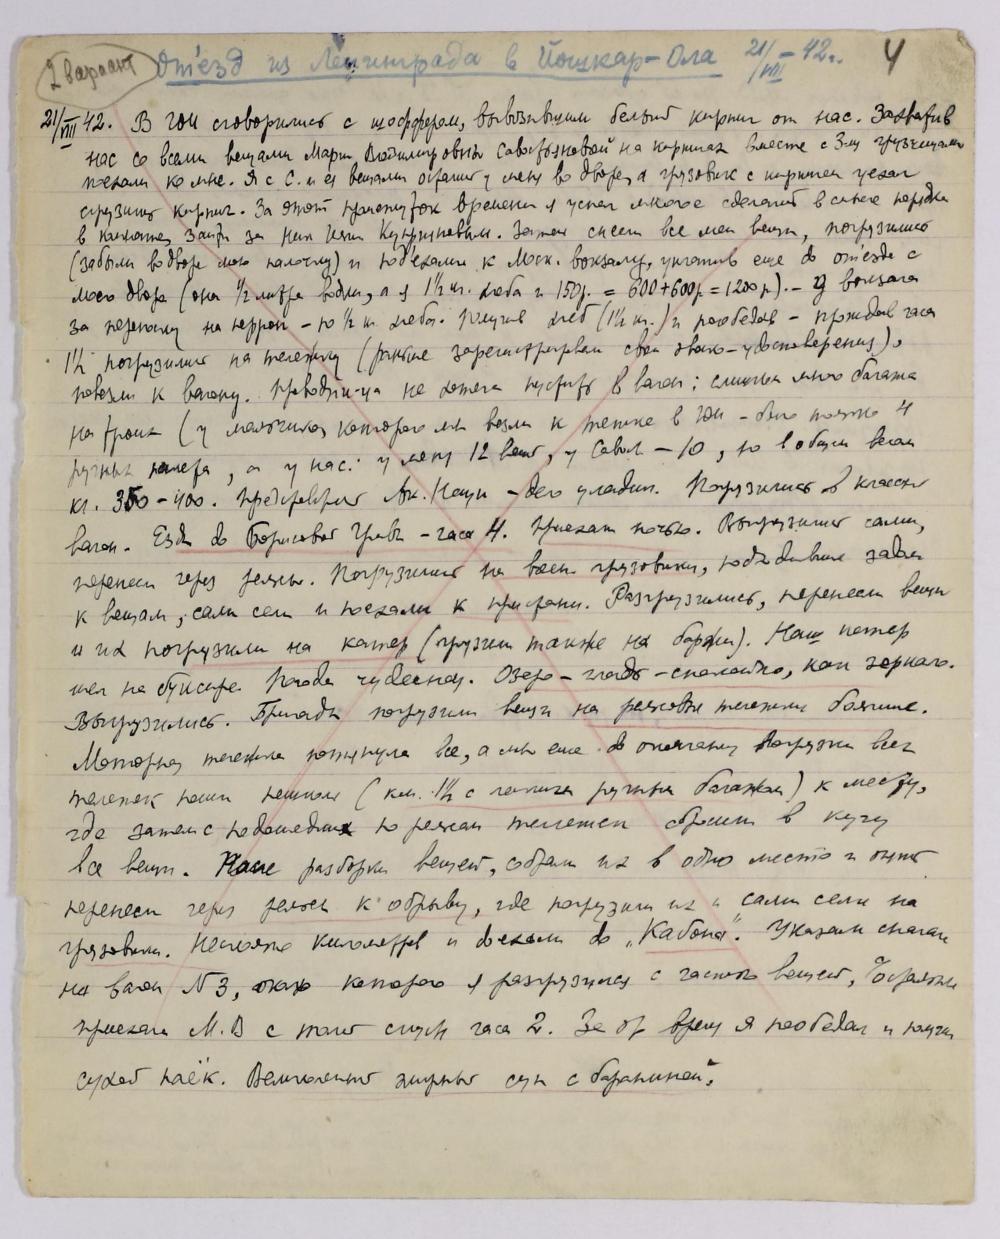 2 вариант Отъезд из Ленинграда в Йошкар-Ола 21/VIII-42г. 4
21/VIII 42. В ГОИ сговорились с шоффером, вывозившим белый кирпич от нас. Захватив
нас со всеми вещами Марии Владимировны на кирпичах вместе с 3мя грузчицами
поехали ко мне. Я с С. и ея вещами остался у меня во дворе, а грузовик с кирпичем уехал
сгрузить кирпич. За этот промежуток времени я успел многое сделать в смысле порядка
в комнате, зайти за Затем снесли все мои вещи, погрузились
(забыли во дворе мою палочку) и подъехали к Моск. вокзалу, уплатив еще до отъезда с
моего двора (она ½ литра водки, а я 1½ кг. хлеба и 150 р. = 600+600р = 1200 р.). – У вокзала
за переноску на перрон – по ½ кг. хлеба. Получив хлеб (1½ кг.) и пообедав – прождав часа
1½ погрузились на тележку (раньше зарегистрировали свои эвако-удостоверения),
повезли к вагону. Проводни-ца не хотела пустить в вагон; слишком много багажа
на троих (у мальчика, которого мы везли к тетке в – было только 4
ручных, а у нас: у меня 12 вещ, у Савол – 10, но в общем весом
кг. 350-400. – дело уладил. Погрузились в классн
вагон. Езды до Борисовой Гривы – часа 4. Приехали ночью. Выгрузились сами,
перенесли через рельсы. Погрузились на воен. грузовики, подъехавшие задом
к вещам, сами сели и поехали к пристани. Разгрузились, перенесли вещи
и их погрузили на катер (грузили также на баржи). Наш катер
шел на буксире. Погода чудесная. Озеро – гладь – спокойно, как зеркало.
Выгрузились. Бригады погрузили вещи на рельсовые тележки большие.
Моторная тележка потянула все, а мы еще до окончания погрузки всех
тележек пошли пешком (км. 1½ с легким ручным багажом) к месту,
где затем с подошедших по рельсам тележек сбросили в кучу
все вещи. После разборки вещей, собрали их в одно место и опять
перенесли через рельсы к обрыву, где погрузили их и сами сели на
грузовики. Несколько километров и доехали до „Кабона“. Указали сначала
на вагон №3, около которого я разгрузился с частью вещей, остальные
приехала М.В с ними спустя часа 2. За это время я пообедал и получил
сухой паёк. Великолепный жирный суп с бараниной.